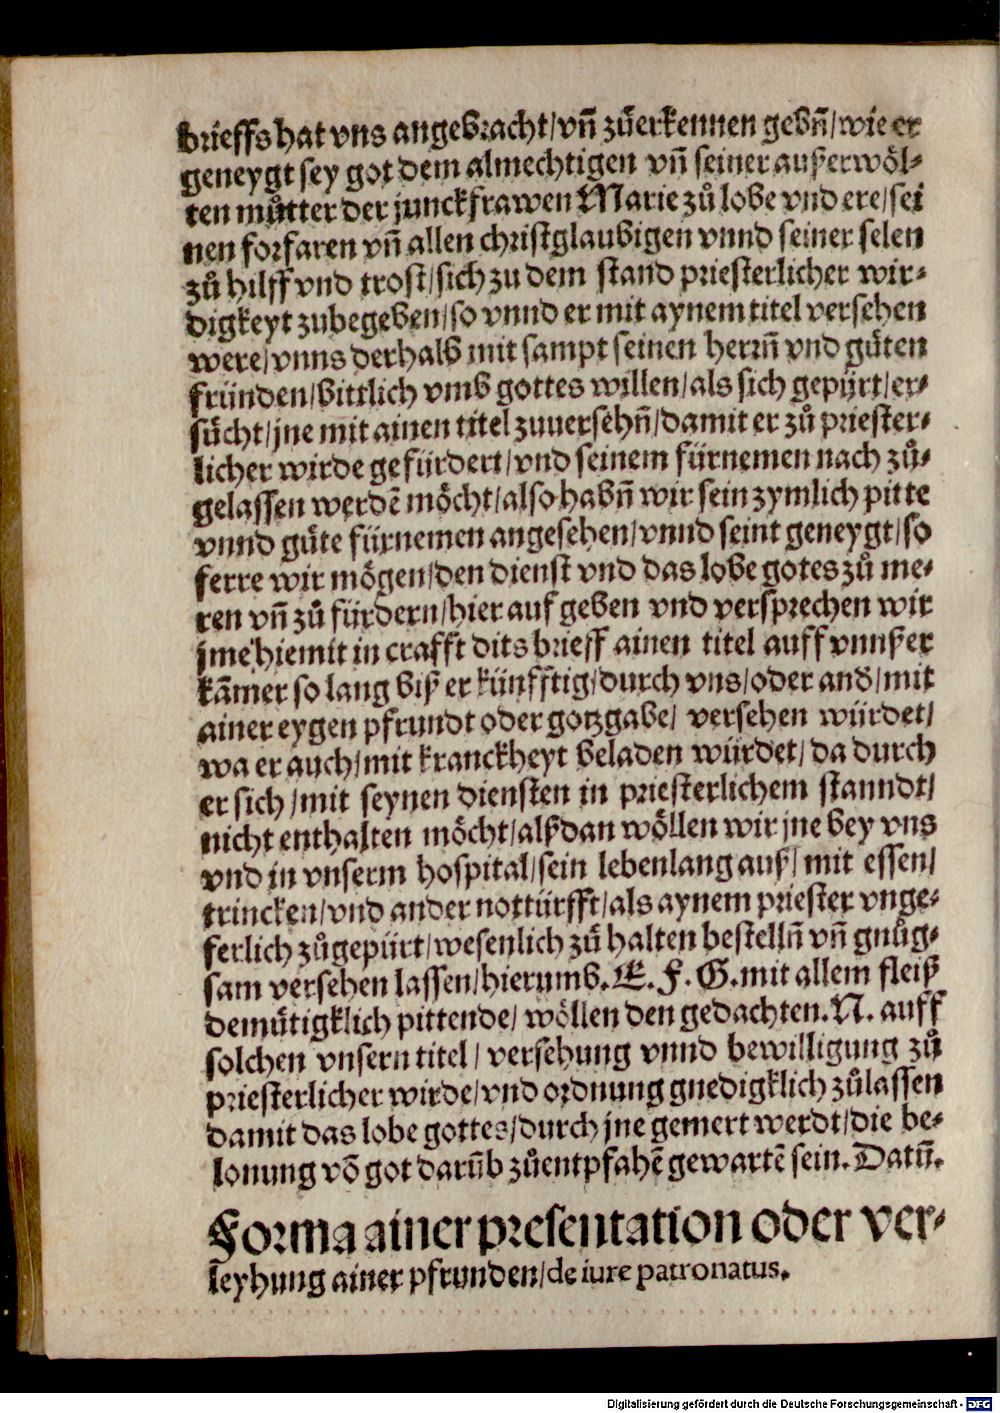 brieffs hat vns angebracht/vñ zůerkennen gebñ/wie er
geneygt sey got dem almechtigen vñ seiner außerwöl-
ten můtter der junckfrawen Marie zů lobe vnd ere/sei
nen forfaren vñ allen christglaubigen vnnd seiner selen
zů hilff vnd trost/sich zu dem stand priesterlicher wir-
digkeyt zubegeben/so vnnd er mit aynem titel versehen
were/vnns derhalb mit sampt seinen herrñ vnd gůten
fründen/bittlich vmb gottes willen/als sich gepürt/er-
sůcht/jne mit ainen titel zuuersehñ/damit er zů priester-
licher wirde gefürdert/vnd seinem fürnemen nach zů-
gelassen werdē möcht/also habñ wir sein zymlich pitte
vnnd gůte fürnemen angesehen/vnnd seint geneygt/so
ferre wir mögen/den dienst vnd das lobe gotes zů me-
ren vñ zů fürdern/hier auf geben vnd versprechen wir
jme hiemit in crafft dits brieff ainen titel auff vnnßer
kām̄er so lang biß er künfftig/durch vns/oder and̕/mit
ainer eygen pfrundt oder gotzgabe/ versehen würdet/
wa er auch/mit kranckheyt beladen würdet/da durch
er sich/mit seynen diensten in priesterlichem stanndt/
nicht enthalten möcht/alßdan wöllen wir jne bey vns
vnd in vnserm hospital/sein lebenlang auß/mit essen/
trincken/vnd ander nottürfft/als aynem priester vnge-
ferlich zůgepürt/wesenlich zů halten bestellñ vñ gnůg-
sam versehen lassen/hierumb.E.F.G.mit allem fleiß
demütigklich pittende/ wöllen den gedachten.N. auff
solchen vnsern titel/ versehung vnnd bewilligung zů
priesterlicher wirde/vnd ordnung gnedigklich zůlassen
damit das lobe gottes/durch jne gemert werdt/die be-
lonung vō got darūb zůentpfahē gewartē sein. Datū.
Forma ainer presentation oder ver-
leyhung ainer pfrunden/de iure patronatus.
Digitalisierung gefördert durch die Deutsche Forschungsgemeinschaft - DFG